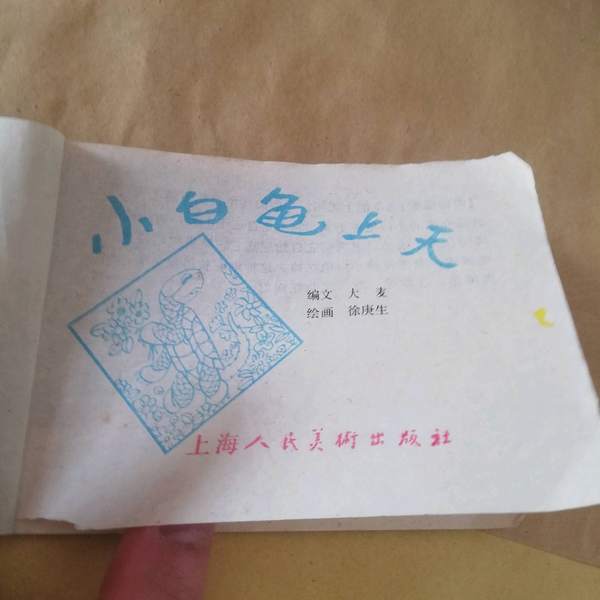 小白龟上天
编文 大麦
绘画 徐庚生
上海人民美術出版社